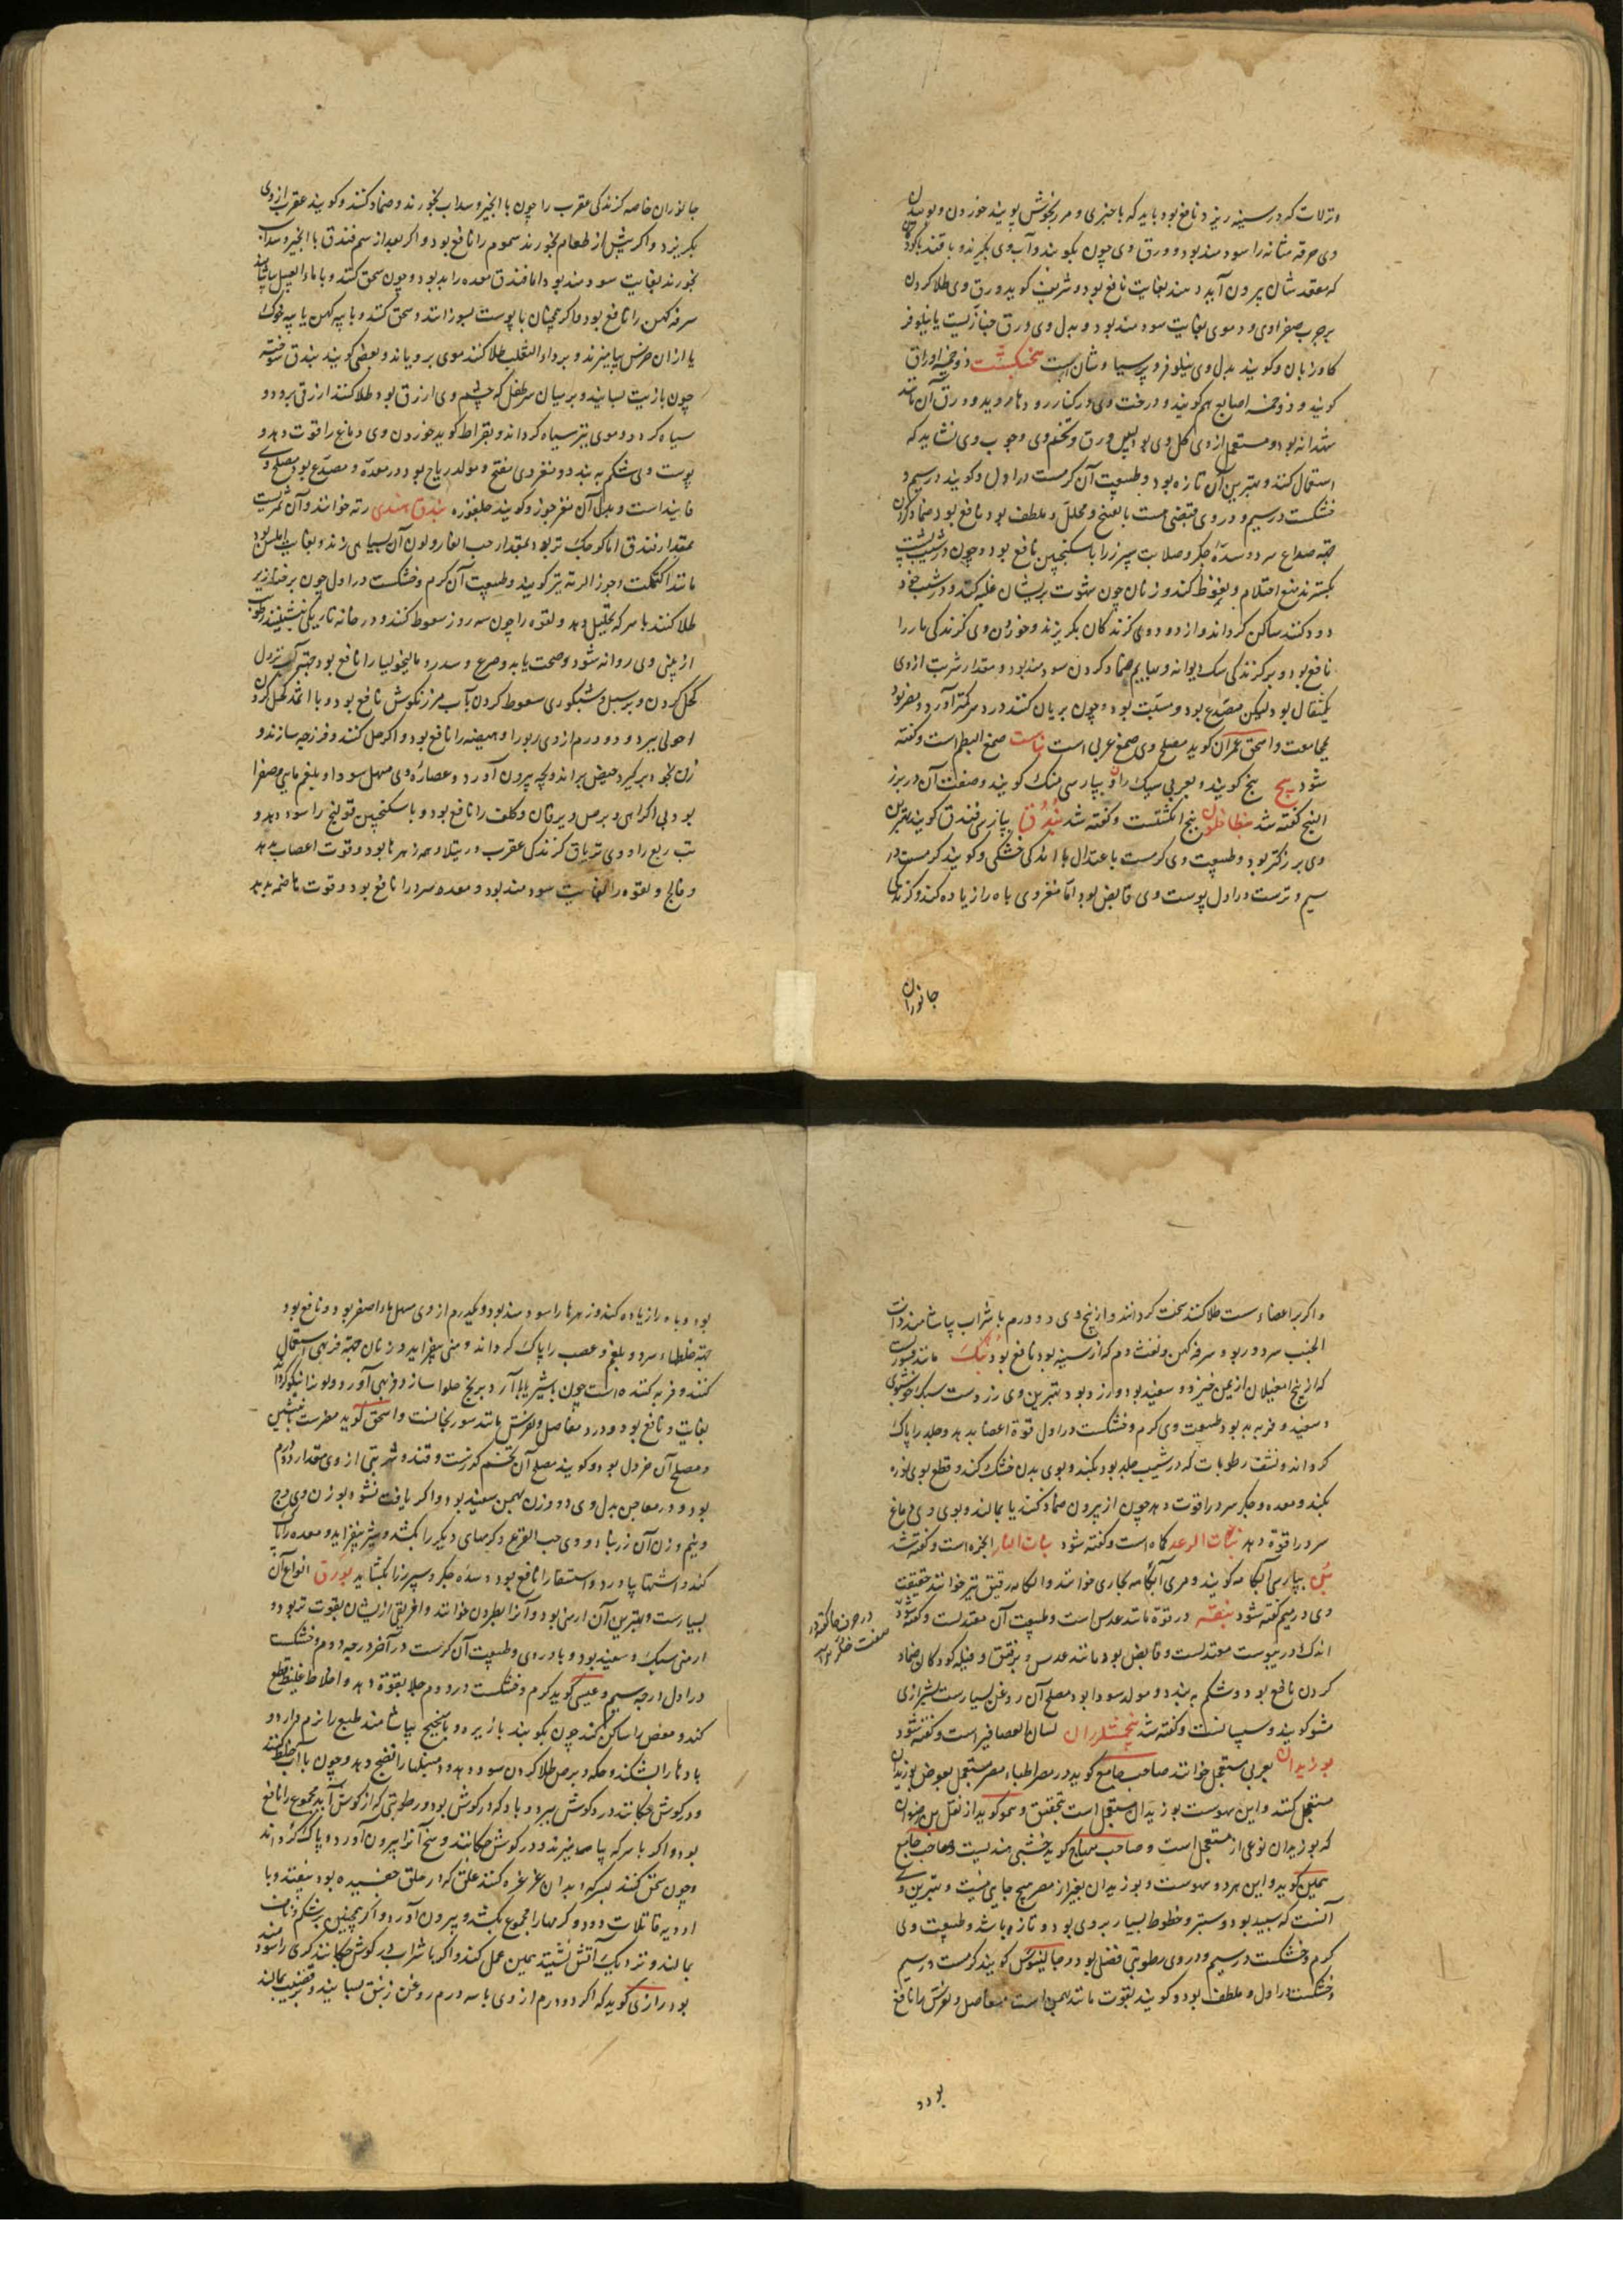 ونزلات که در سینه ریزد نافع بود باید که با خبزی و مرزنجوش پویند خوردن و بوییدن
وی حرقه مثانه را سودمند بود و ورق وی چون بکوبند و آب وی بگیرند و با قند بکودکان
که مقعد شان بیرون آید دهند بغایت نافع بود و شریف کوید ورق وی طلا کردن
بر جرب صفراوی و دموی بغایت سودمند بود و بدل وی ورق خبازیست یا نیلوفر
کاوزبان و کویند بدل وی نیلوفر و پرسیاوشان است پنجنکشت ذو خمسه اوراق
کویند و ذو خمسه اصابع هم کویند و درخت وی در کنار رودها روید و ورق آن مانند
شهدانه بود و مستعمل از وی کل وی بود پس ورق و تخم وی و چوب وی نشاید که
استعمال کنند و بهترین آن تازه بود و طبیعت آن کرمست در اول و کویند در سیم و
خشکست در سیم و در وی قبضی هست با نضج و محلل و ملطف بود نافع بود ضماد کردن
جهة صداع سرد و سدّه جکر و صلابت سپرز را با سکنجبین نافع بود و چون در شیب پشت
بکسترند منع احتلام و نعوظ کند و زنان چون شهوت بریشان غلبه کند و در شیب خود
دود کنند ساکن کرداند و از دود وی کزندکان بکریزند و خوردن وی کزندکی مار را
نافع بود و بر کزندکی سک دیوانه و بهایم ضماد کردن سودمند بود و مقدار شربت از وی
یکمثقال بود لیکن مصدّع بود و مسبّت بود و چون بریان کنند درد سر کمتر آورد و مضر بود
بمجامعت و اسحق عمران کوید مصلح وی صمغ عربی است بناست صمغ البطم است و کفته
شود بنج بنج کویند و بعربی سیکران و بپارسی منک کویند و صفت آن در بزر
البنج کفته شد بنطافلون پنج انکشتست و کفته شد بُندُق بپارسی فندق کویند بهترین
وی بزرکتر بود و طبیعت وی کرمست باعتدال با اندکی خشکی و کویند کرمست در
سیم و ترست در اول پوست وی قابض بود اما مغز وی باه را زیاده کند و کزندکی
جانوران
جانوران خاصه کزندکی عقرب را چون با انجیر و سداب بخورند و ضماد کنند و کویند عقرب از وی
بکریزد و اکر پیش از طعام بخورند سموم را نافع بود و اکر بعد از سم فندق با انجیر و سداب
بخورند بغایت سودمند بود اما فندق معده را بد بود و چون سحق کنند و با ماء العسل بیاشامند
سرفه کهن را نافع بود و اکر همچنان با پوست بسوزانند و سحق کنند و با پیه کهن یا پیه خوک
یا از ان خرس بیامیزند و بر داء الثعلب طلا کنند موی برویاند و بعضی کویند بندق سوخته
چون با زیت بسایند و بر میان سر طفل که چشم وی ازرق بود طلا کنند ازرقی ببرد و
سیاه کردد و موی نیز سیاه کرداند و بقراط کوید خوردن وی دماغ را قوت دهد و
پوست وی شکم ببندد و مغز وی منفخ و مولد ریاح بود در معده و مصدّع بود مصلح وی
فانیداست و بدل آن مغز جوز و کویند جلغوزه بندق هندی رته خوانند و آن ثمریست
بمقدار فندق اما کوچک تر بود بمقدار حب الغار و لون آن بسیاهی زند و بغایت املس بود
مانند اکتمکت و جوز الرته نیز کویند و طبیعت آن کرم و خشکست در اول چون بر خنازیر
طلا کنند با سرکه تحلیل دهد و لقوه را چون سه روز سعوط کنند و در خانه تاریک بنشینند رطوبت
از بینی وی روانه شود و صحت یابد و صرع و سدر و مالیخولیا را نافع بود جهة آب نزول
کحل کردن و بر سبل و شبکوری سعوط کردن بآب مرزنکوش نافع بود و با اثمد کحل کردن
احولی ببرد و دو درم از وی ربو را و هیضه را نافع بود و اکر حل کنند و فرزجه سازند و
زن بخود برکیرد حیض براند و بچه بیرون آورد و عصاره وی مسهل سودا و بلغم مایی و صفرا
بود بی اکراهی و برص و یرقان و کلف را نافع بود و با سکنجبین قولنج را سود دهد و
تب ربع را و وی تریاق کزندکی عقرب و رتیلا و همه زهرها بود و قوت اعصاب بدهد
و فالج و لقوه را بغایت سودمند بود و معده سرد را نافع بود و قوت هاضمه بدهد
واکر بر اعضاء سست طلا کنند سخت کرداند و از بیخ وی دو درم با شراب بیاشامند ذات
الجنب سرد و ربو و سرفه کهن و نفث دم که از سینه بود نافع بود بُنک مانند قشوریست
که از بیخ ام غیلان از یمن خیزد و سفید بود و زرد بود بهترین وی زردست سبک خوشبوی
و سفید و فربه بد بود طبیعت وی کرم و خشکست در اول قوة اعضا بدهد و جلد را پاک
کرداند و نشف رطوبات که در شیب جلد بود بکند و بوی بدن خشک کند و قطع بوی نوره
بکند و معده و جکر سرد را قوت دهد چون از بیرون ضماد کنند یا بمالند و بوی وی دماغ
سرد را قوة دهد نبات الرعد کماه است و کفته شود نبات النار انجره است و کفته شد
بُنّ بپارسی آبکامه کویند و مری آبکامه بخاری خوانند و ابکامه رقیق نیز خوانند حقیقت
وی در میم کفته شود بنقه در قوة مانند عدس است و طبیعت آن معتدلست و کفته شود
اندک در یبوست معتدلست و قابض بود مانند عدس و بر فتق و قیله کودکان ضماد
کردن نافع بود و شکم ببندد و مولد سودا بود مصلح آن روغن بسیارست بشیرازی
مشو کویند و سپسالنست و کفته شد بنجشک زبان لسان العصافیر است و کفته شود
بوزیدان بعربی مستعجل خوانند صاحب جامع کوید در مصر اطباء مصر مستعجل بعوض بوزیدان
مستعمل کنند و این سهوست بوزیدان مستعجل است بتحقیق و سهو کوید از نقل ابن رضوان
که بوزیدان نوعی از مستعجل است و صاحب منهاج کوید خشبی هندیست و صاحب جامع
همین کوید و این هر دو سهوست و بوزیدان بغیر از مصر هیچ جایی نیست و بهترین وی
آنست که سپید بود و سطبر و خطوط بسیار بروی بود و تازه باشد و طبیعت وی
کرم و خشکست در سیم و در وی رطوبتی فضلی بود و جالینوس کویند کرمست در سیم
و خشکست در اول و ملطف بود و کویند بقوت مانند بهمن است مفاصل و نقرس را نافع
بود و
بود و باه را زیاده کند و زهرها را سودمند بود و یکدرم از وی مسهل ماء اصفر بود و نافع بود
جهة خلطهاء سرد و بلغم و عصب را پاک کرداند و منی بیفزاید و زنان جهة فربهی استعمال
کنند و فربه کننده است چون با شیر یا با آرد برنج حلوا سازد فربهی آورد و لون را نیکو کرداند
بغایت و نافع بود و درد مفاصل و نقرس مانند سورنجانست و اسحق کوید مضرست بانثیین
و مصلح آن خردل بود و کویند مصلح آن تخم کزرست و قند و شربتی از وی مقدار دو درم
بود و در معاجین بدل وی دو وزن بهمن سفید بود و اکر یافت نشود بوزن وی وج
و نیم وزن آن زرنباد و وی حب القرع و کرمهای دیکر را بکشد و شیر بیفزاید و معده را پاک
کند و اشتها بیاورد و استسقا را نافع بود و سدّه جکر و سپرز را بکشاید بورق انواع آن
بسیارست و بهترین آن ارمنی بود و آنرا نطرون خوانند و افریقی از ایشان بقوت تر بود و
ارمنی سبک و سفید بود و با دروی و طبیعت آن کرمست در آخر درجه دوم و خشکست
در اول درجه سیم و عیسی کوید کرم و خشکست در دوم جلا بقوة دهد و اخلاط غلیظ قطع
کند و مغص را ساکن کند چون بکوبند با زیره و با میبختج بیاشامند طبع را نرم دارد و
بادها را بشکند و حکه و برص طلا کردن سود دهد و دمبلها را نضج دهد و چون با آب خلط کنند
و در کوش چکانند درد کوش ببرد و باد که در کوش بود و رطوبتی که از کوش آید مجموع را نافع
بود و اکر با سرکه بیامیزند و در کوش چکانند وسخ آنرا بیرون آورد و پاک کرداند
و چون سحق کنند بسرکه و بدان غرغره کنند علق که در حلق چفسیده بود بیفتد و با
ادویه قاتلات دود و کرمها را مجموع بکشد و بیرون آورد و اکر همچنین بر شکم و ناف
بمالند و نزدیک آتش نشیند همین عمل کند و اکر با شراب در کوش چکانند کری را سودمند
بود رازی کوید که اکر دو درم از وی با سه درم روغن زنبق بسایند و بر قضیب بمالند